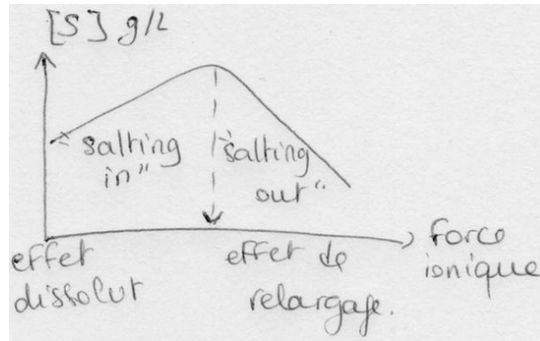 [S] g/L
"salting in"
"salting out"
force ionique
effet dissolut
effet de relargage.